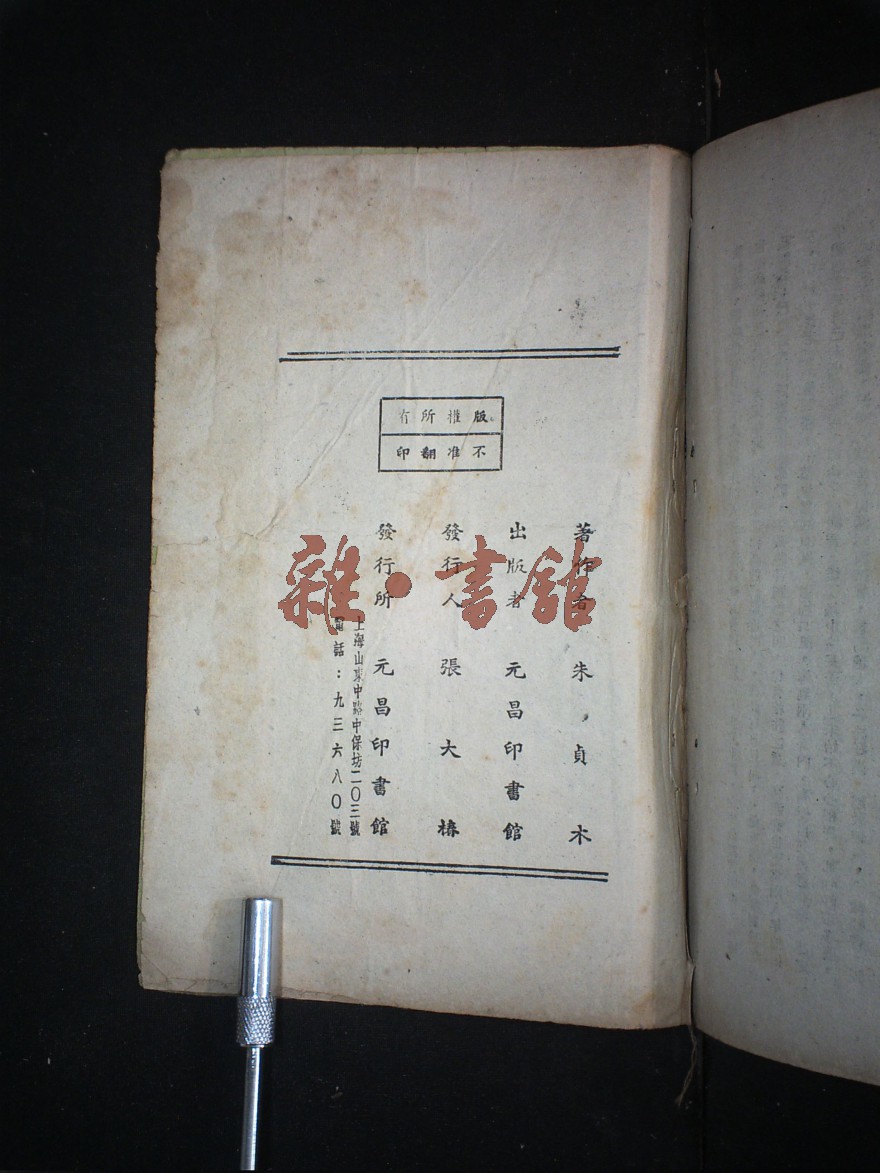 版權所有
不准翻印
著作者 朱貞木
出版者 元昌印書館
發行人 張大椿
發行所 元昌印書館
上海山東中路中保坊二〇三號
電話：九三六八〇號
雜·書館